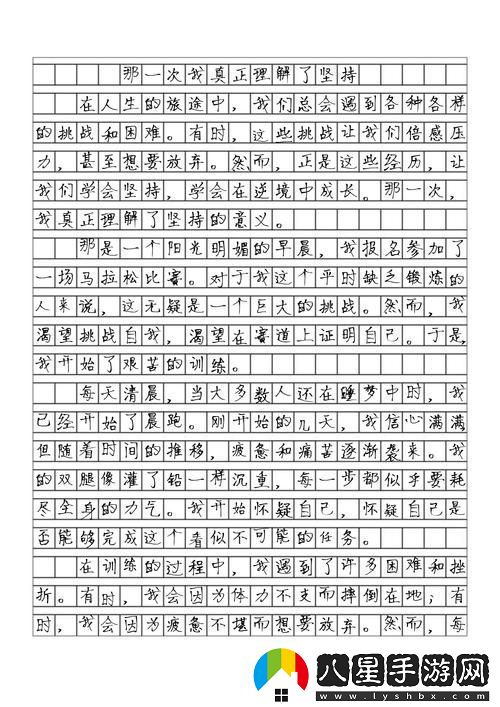 那一次我真正理解了坚持
在人生的旅途中，我们总会遇到各种各样
的挑战和困难。有时，这些挑战让我们倍感压
力，甚至想要放弃。然而，正是这些经历，让
我们学会坚持，学会在逆境中成长。那一次，
我真正理解了坚持的意义。
那是一个阳光明媚的早晨，我报名参加了
一场马拉松比赛。对于我这个平时缺乏锻炼的
人来说，这无疑是一个巨大的挑战。然而，我
渴望挑战自我，渴望在赛道上证明自己。于是，
我开始了艰苦的训练。
每天清晨，当大多数人还在睡梦中时，我
已经开始了晨跑。刚开始的几天，我信心满满，
但随着时间的推移，疲惫和痛苦逐渐袭来。我
的双腿像灌了铅一样沉重，每一步都似乎要耗
尽全身的力气。我开始怀疑自己，怀疑自己是
否能够完成这个看似不可能的任务。
在训练的过程中，我遇到了许多困难和挫
折。有时，我会因为体力不支而摔倒在地；有
时，我会因为疲惫不堪而想要放弃。然而，每
八星手游网
www.lyshbx.com